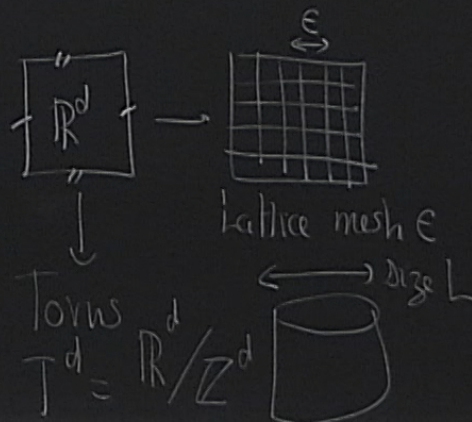 ε
ℝ^d
Lattice mesh ε
Size L
Torus
T^d = ℝ^d/ℤ^d